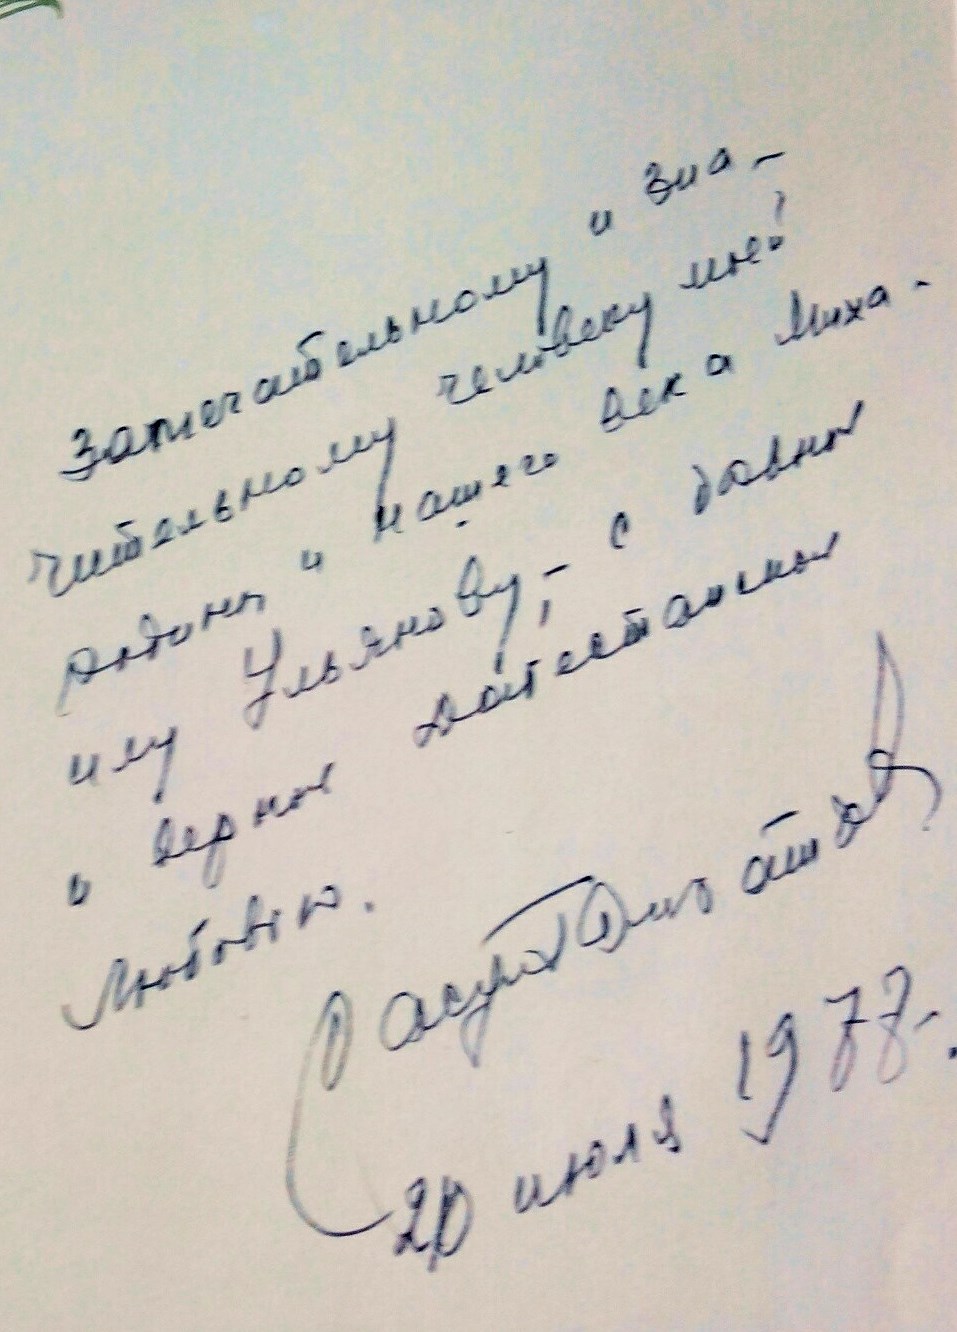 Замечательному и зна-
чительному человеку моей
родины и нашего века Миха-
илу Ульянову, - с давной
и верной дагестанской
Любовью.
Расул Гамзатов
20 июля 1977.